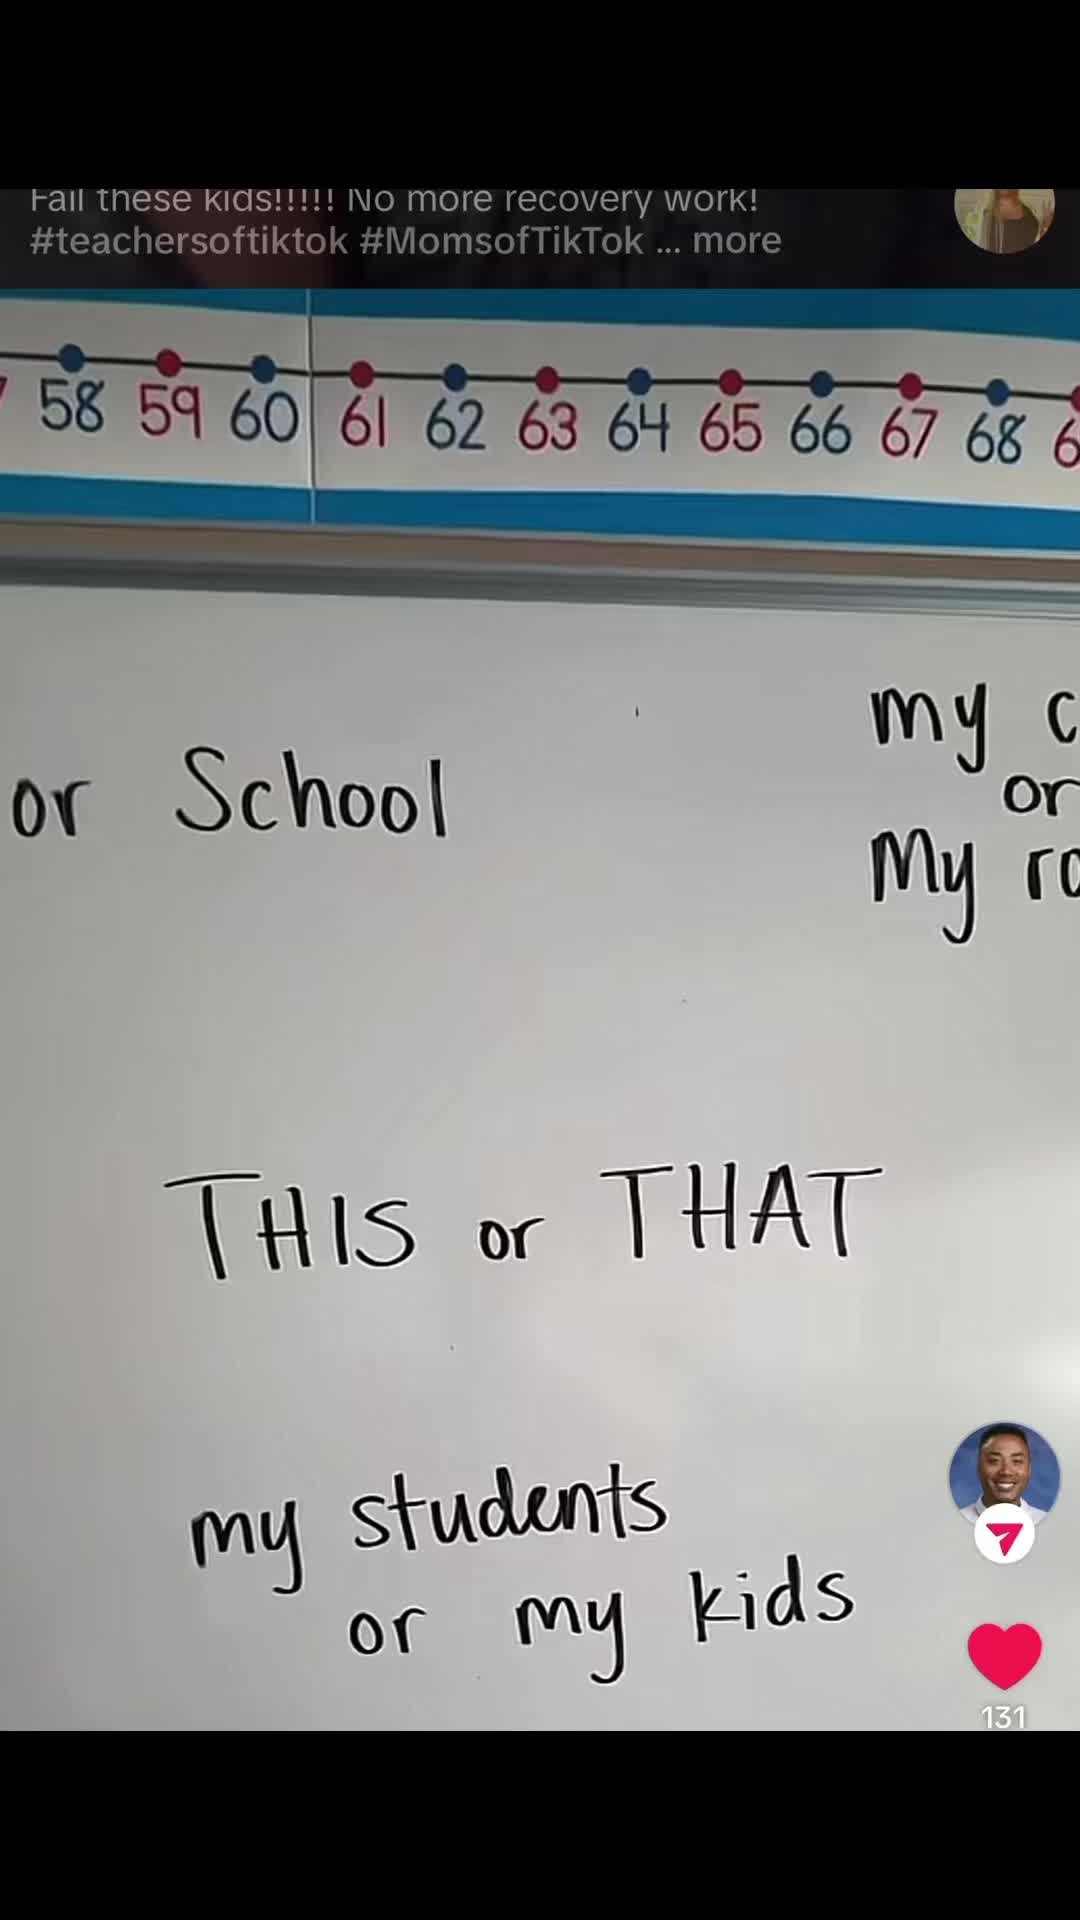 Fail these kids!!!!! No more recovery work!
#teachersoftiktok #MomsofTikTok ... more
58 59 60 61 62 63 64 65 66 67 68
or School
my
or
My
THIS or THAT
my students
or my kids
131